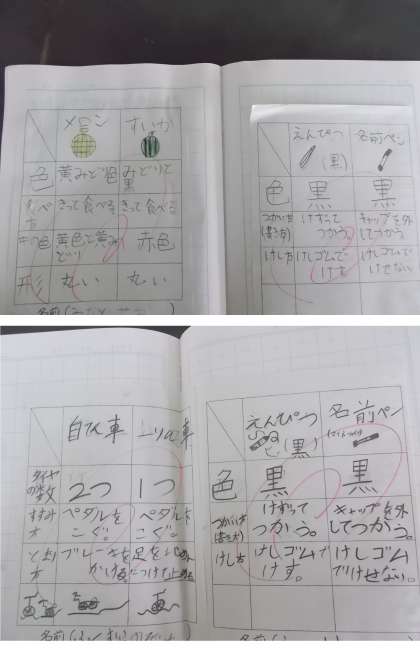 メロン すいか
色 黄みどり色 みどりと黒
きって食べる きって食べる
黄色と黄みどり 赤色
形 丸い 丸い
えんぴつ(黒) 名前ペン
色 黒 黒
つかい方(書き方) けずってつかう。 キャップを外してつかう。
けし方 けしゴムでけす けしゴムでけせない。
自てん車
タイヤの数 2つ 1つ
すすみ方 ペダルをこぐ。 ペダルをこぐ。
ブレーキをかける
えんぴつ(黒) 名前ペン
色 黒 黒
つかい方(書き方) けずってつかう。 キャップを外してつかう。
けし方 けしゴムでけす。 けしゴムでけせない。
名前(
名前(